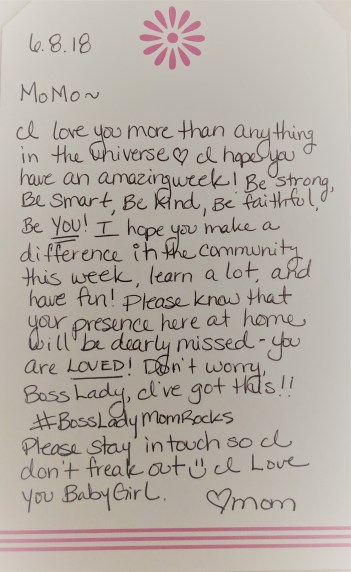 6.8.18
MoMo~
I love you more than anything
in the universe♡ I hope you
have an amazing week! Be strong,
Be smart, Be kind, Be faithful,
Be YOU! I hope you make a
difference in the community
this week, learn a lot, and
have fun! Please know that
your presence here at home
will be dearly missed - you
are LOVED! Don't worry,
Boss Lady, I've got this!!
#BossLadyMomRocks
Please stay in touch so I
don't freak out ☺ I Love
You BabyGirl. ♡mom